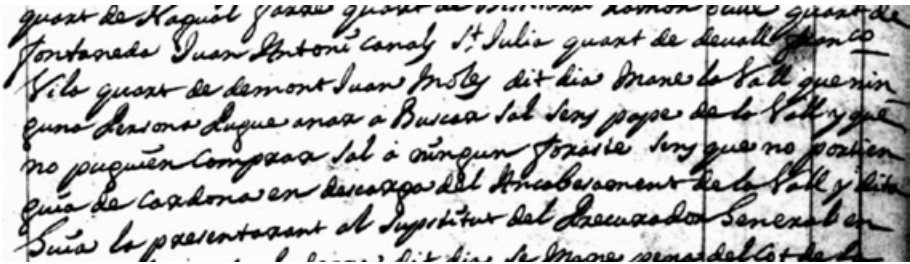 quart de Nagual Farré quart de Ramon quart de
fontaneda Juan Antoni Canals St. Julia quart de devall Franco
Vila quart de demont Juan Moles dit dia Mane la Vall que nin
guna Persona Pugue anar a Buscar Sal sens pape de la Vall y que
no puguien Comprar Sal a ningun foraste sens que no portien
guia de Cardona en descarga del Ancabesament de la Vall y dita
Guia la presentarant al Supstitut del Procurador General en
dit dia se Mane pena del Cot de la